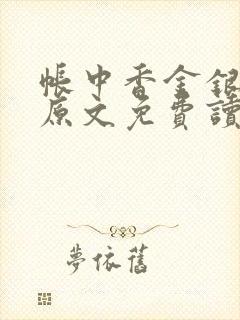 帳中香金銀
原文免費讀
夢依舊